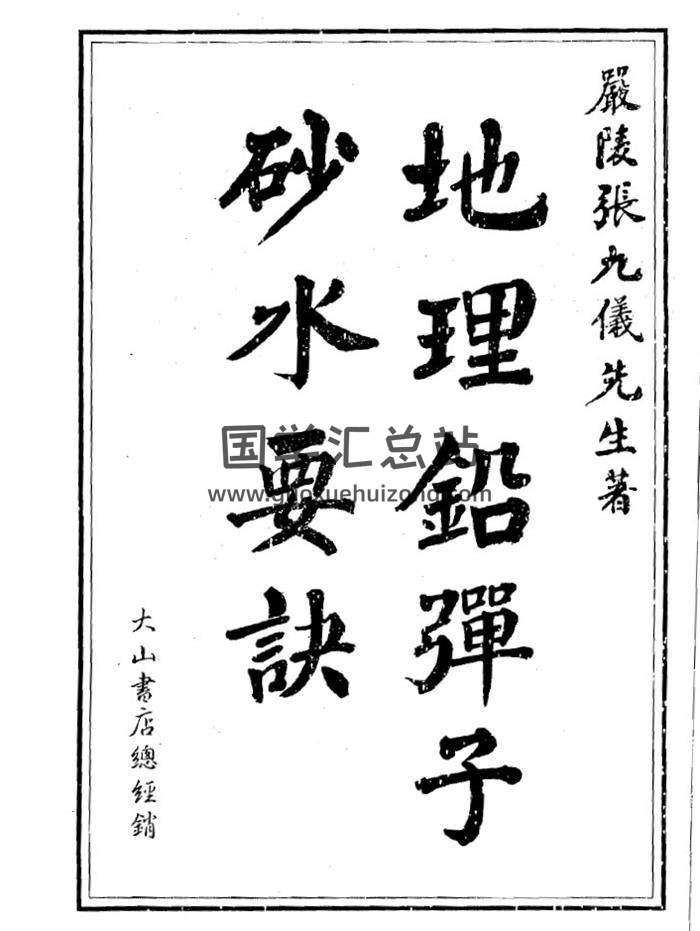 嚴陵張九儀先生著
地理鉛彈子
砂水要訣
大山書店總經銷
国学汇总站
www.guoxuehuizong.com